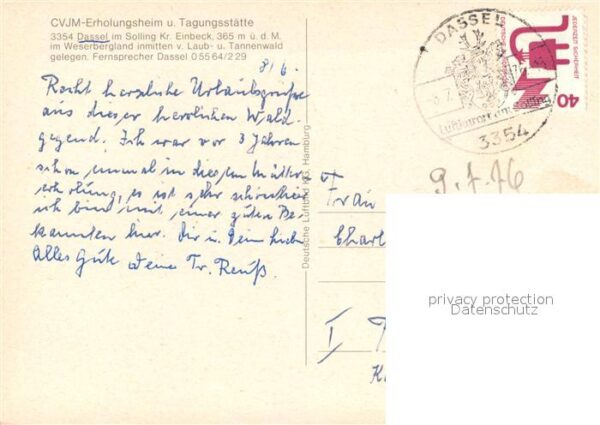 CVJM-Erholungsheim u. Tagungsstätte
3354 Dassel im Solling Kr. Einbeck, 365 m ü. d. M.
im Weserbergland inmitten v. Laub- u. Tannenwald
gelegen. Fernsprecher Dassel 0 55 64/2 29
Recht herzliche Urlaubsgrüße
aus dieser herrlichen Wald-
gegend. Ich war vor 3 Jahren
schon einmal in diesem Mütter
erholung, es ist sehr schön hier
ich bin mit einer guten Be-
kannten hier. Dir u. Deinen
Alles Gute Deine Tr. Reuß.
Deutsche Luftbild KG, Hamburg
DASSEL
Luftkurort im Solling
3354
JEDERZEIT SICHERHEIT
40
9.7.76
Frau
Charl
I
privacy protection
Datenschutz